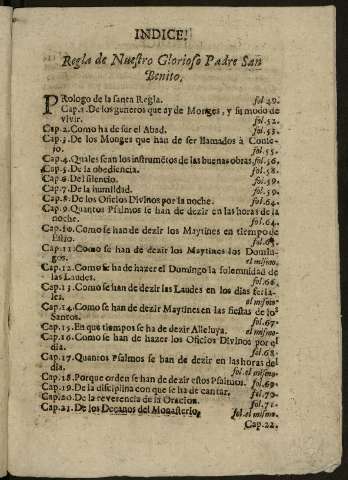 INDICE.
Regla de Nuestro Glorioso Padre San
Benito.
PRologo de la santa Regla. fol.49.
Cap.1. De los generos que ay de Monges, y su modo de
vivir. fol.52.
Cap.2. Como ha de ser el Abad. fol.53.
Cap.3. De los Monges que han de ser llamados à Conse-
jo. fol.55.
Cap.4. Quales sean los instrumẽtos de las buenas obras. fol.56.
Cap.5. De la obediencia. fol.58.
Cap.6. Del silencio. fol.59.
Cap.7. De la humildad. fol.59.
Cap.8. De los Oficios Divinos por la noche. fol.64.
Cap.9. Quantos Psalmos se han de dezir en las horas de la
noche. fol.64.
Cap.10. Como se han de dezir los Maytines en tiempo de
Estio. fol.65.
Cap.11. Como se han de dezir los Maytines los Domin-
gos. el mismo.
Cap.12. Como se ha de hazer el Domingo la solemnidad de
las Laudes. fol.66.
Cap.13. Como se han de dezir las Laudes en los dias feria-
les. el mismo.
Cap.14. Como se han de dezir Maytines en las fiestas de los
Santos. fol.67.
Cap.15. En què tiempos se ha de dezir Alleluya. el mismo.
Cap.16. Como se han de hazer los Oficios Divinos por el
dia. fol.68.
Cap.17. Quantos Psalmos se han de dezir en las horas del
dia. fol. el mismo.
Cap.18. Porque orden se han de dezir estos Psalmos. fol.69.
Cap.19. De la disciplina con que se ha de cantar. fol.70.
Cap.20. De la reverencia de la Oracion. fol.71.
Cap.21. De los Decanos del Monasterio. fol. el mismo.
Cap.22.